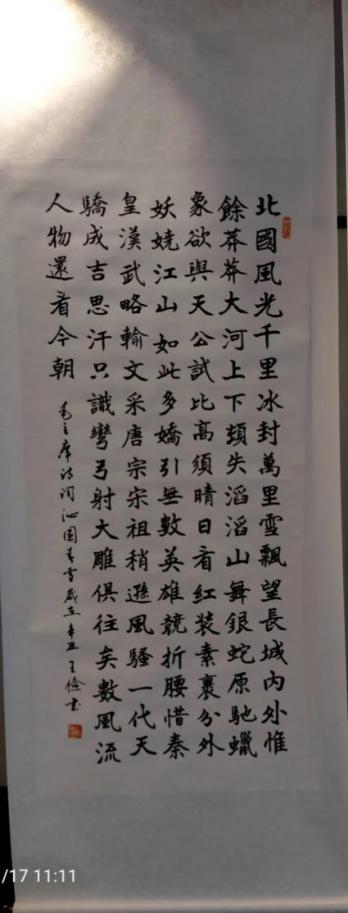 北國風光千里冰封萬里雪飄望長城內外惟
餘莽莽大河上下頓失滔滔山舞銀蛇原馳蠟
象欲與天公試比高須晴日看紅裝素裹分外
妖嬈江山如此多嬌引無數英雄競折腰惜秦
皇漢武略輸文采唐宗宋祖稍遜風騷一代天
驕成吉思汗只識彎弓射大雕俱往矣數風流
人物還看今朝
毛主席詩詞沁園春雪歲在辛丑王儉書
/17 11:11